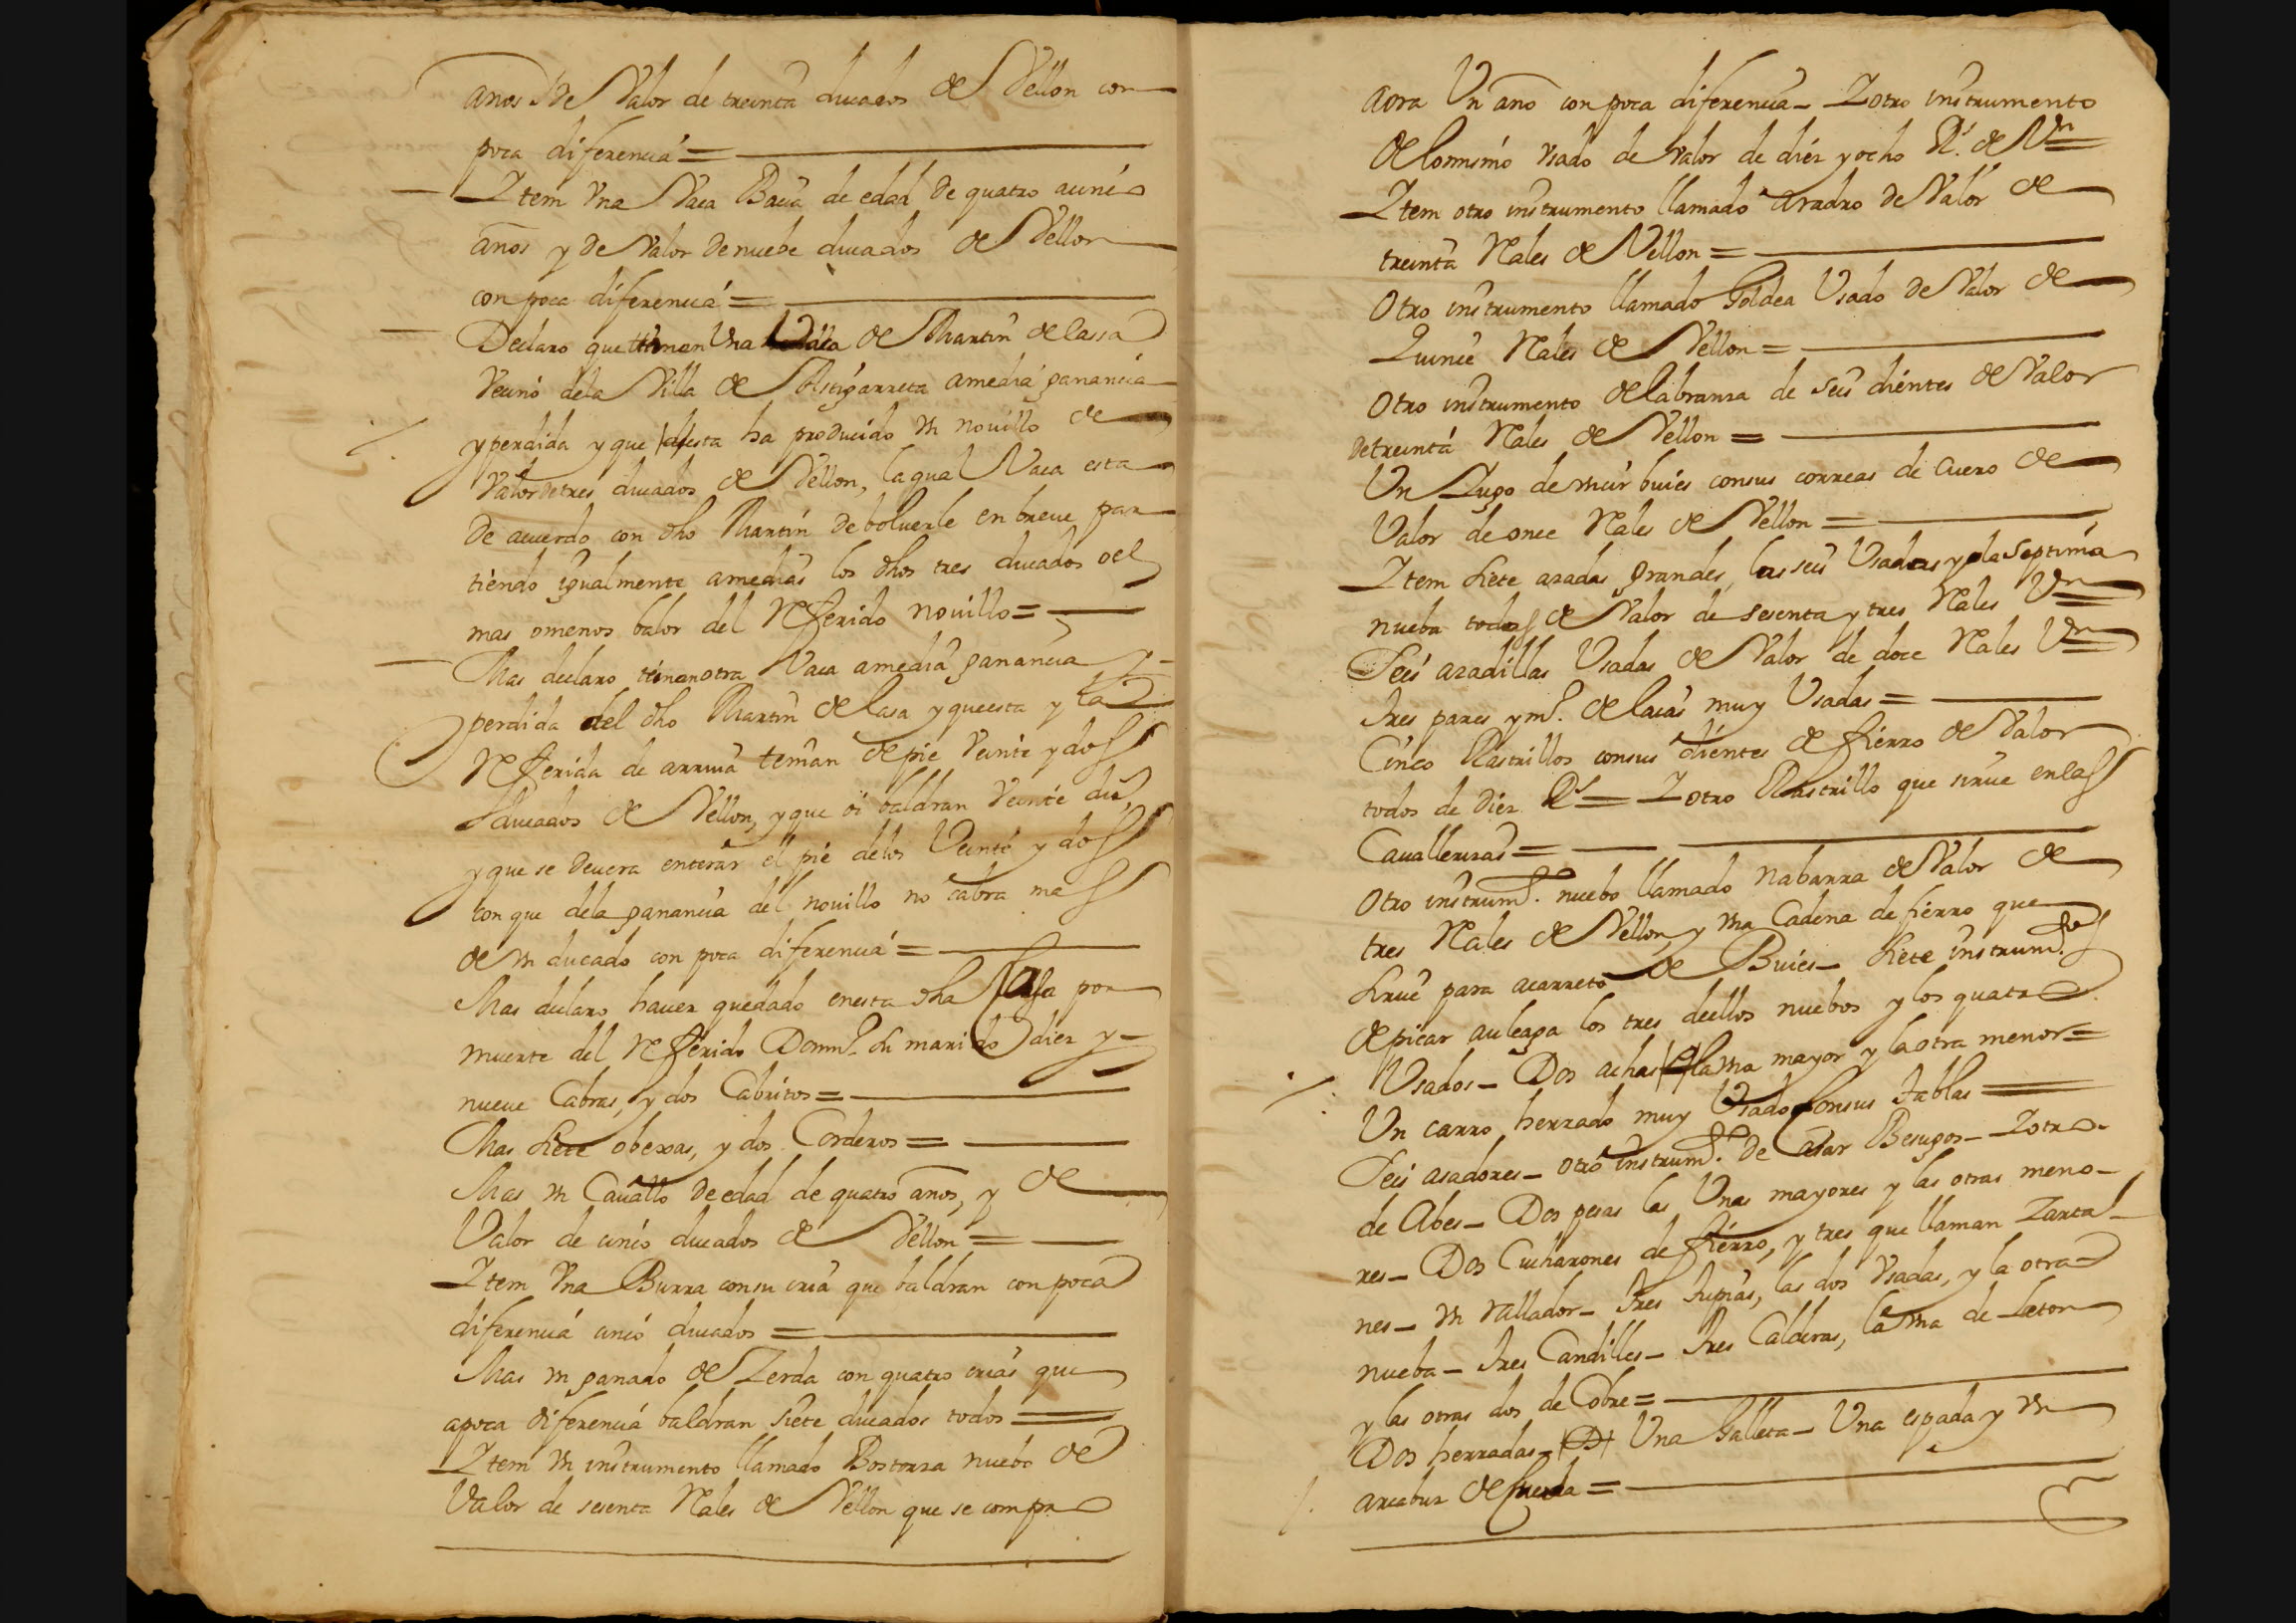 años de Valor de treinta ducados de Vellon con
poca diferencia =
Ytem Vna Vaca Bacia de edad de quatro a cinco
años y de Valor de nuebe ducados de Vellon
con poca diferencia =
Declaro que tienen Vna Vaca de Martin de lassa
Vecino dela Villa de Astigarreta amedia ganancia
y perdida y que esta ha producido Vn nouillo de
Valor de tres ducados de Vellon, la qual Vaca esta
de acuerdo con dho Martin de boluerle en breue par
tiendo igualmente amedias los dhos tres ducados del
mas o menos balor del Refferido nouillo =
Mas declaro tienen otra Vaca amedia ganancia y
perdida del dho Martin de lasa y que esta y la
Refferida de arriua tenian de pie Veinte y doss
ducados de Vellon, y que oi baldran Veinte du,
y que se deuera enterar el pie delos Veinte y doss
con que dela ganancia del nouillo no cabra mass
de Vn ducado con poca diferencia =
Mas declaro hauer quedado en esta dha Casa por
muerte del Refferido Domin.o su marido diez y
nueue Cabras, y dos Cabritos =
Mas siete obexas, y dos Corderos =
Mas Vn Cauallo de edad de quatro años, y de
Valor de cinco ducados de Vellon =
Ytem Vna Burra con su cria que baldran con poca
diferencia cinco ducados =
Mas Vn ganado de Zerda con quatro crias que
apoca diferencia baldran siete ducados todos =
Ytem Vn instrumento llamado Bostorza nuebo de
Valor de sesenta Rales de Vellon que se compro
aora Vn año con poca diferencia – Y otro instrumento
de lo mismo vsado de Valor de diez y ocho Rs. de Vn
Ytem otro instrumento llamado Aradro de Valor de
treinta Rales de Vellon =
Otro instrumento llamado Goldea Vsado de Valor de
Quince Rales de Vellon =
Otro instrumento de labranza de seis dientes de Valor
de treinta Rales de Vellon =
Un Yugo de Vncir buies con sus correas de cuero de
Valor de once Rales de Vellon =
Ytem siete azadas grandes, las seis Vsadas y la septima
nueba todas de Valor de sesenta y tres Rales Vn
Seis azadillas Vsadas de Valor de doce Rales Vn
Tres pares y mo. de laias muy Vsadas =
Cinco Rastrillos con sus dientes de fierro de Valor
todos de diez Rs = Y otro Rastrillo que sirue en lass
Cauallerizas =
Otro instrumto. nuebo llamado Nabarra de Valor de
tres Rales de Vellon y Vna Cadena de fierro que
sirue para acarreto de Buies – siete instrumtos.
de picar auleaga los tres de ellos nuebos y los quatro
Vsados – Dos achas la Vna mayor y la otra menor =
Un carro herrado muy Vsado con sus tablas =
Seis asadores – otro instrumto. de asar Besugos – Y otro
de Abes – Dos pesas las Vnas mayores y las otras meno–
res – Dos Cucharones de fierro, y tres que llaman Zarta–
nes – Vn rallador – Tres tupias, las dos Vsadas, y la otra
nueba – Tres Candilles – Tres Calderas, la Vna de Leton
y las otras dos de Cobre =
Dos herradas – Vna Galleta – Vna espada y Vn
arcabuz de Cuerda =